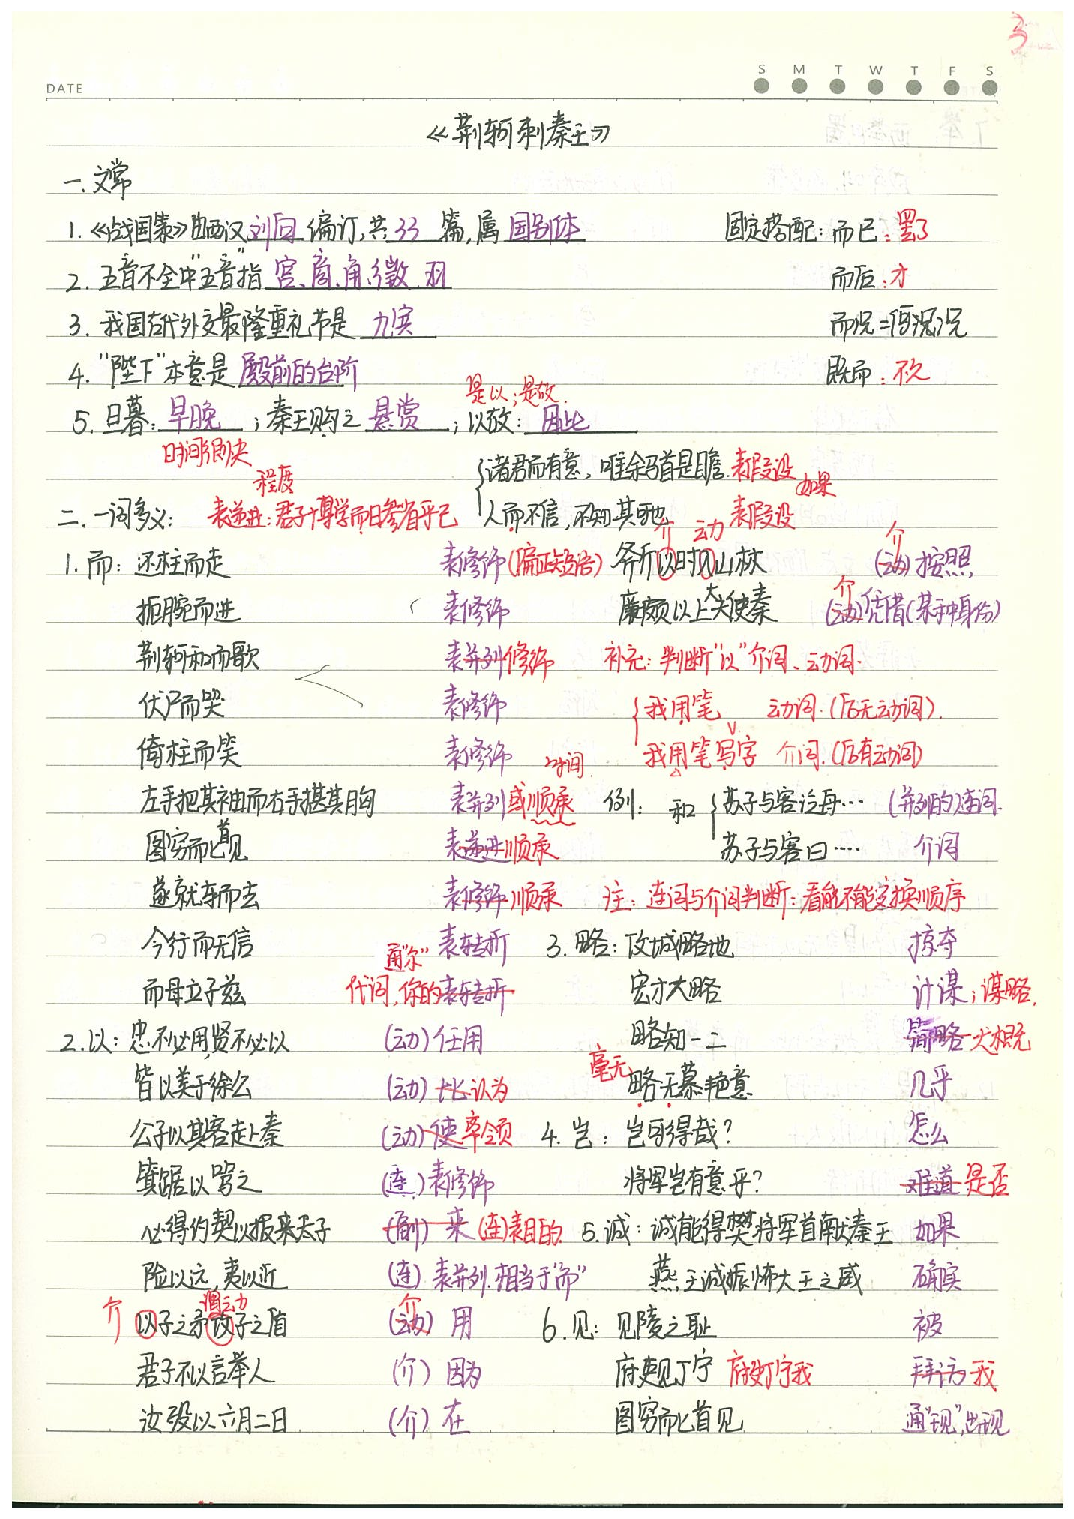 3
DATE
S M T W T F S
《荆轲刺秦王》
一.文常
1.《战国策》由西汉刘向编订,共33篇,属国别体 固定搭配:而已:罢了
2.五音不全中"五音"指宫、商、角、徵、羽 而后:才
3.我国古代外交最隆重礼节是九宾 而况=何况,况
4."陛下"本意是殿前的台阶 既而:不久
是以;是故.
5.旦暮:早晚;秦王购之悬赏;以故:因此
时间很快
诸君而有意,唯余马首是瞻.表假设 如果
程度
二.一词多义: 表递进:君子博学而日参省乎己 人而不信,不知其可也 表假设
介 动 介
1.而:还柱而走 表修饰(偏正短语) 斧斤以时入山林 (动)按照
扼腕而进 表修饰 廉颇以上大夫使秦 介(动)凭借(某种身份)
荆轲和而歌 表并列修饰 补充:判断"以"介词、动词.
伏尸而哭 表修饰 我用笔 动词.(后无动词).
倚柱而笑 表修饰 我用笔写字 介词.(后有动词)
时间
左手把其袖而右手揕其胸 表并列或顺承 例: 和 苏子与客泛舟… (并列的)连词.
图穷而匕首见 表递进顺承 苏子与客曰…. 介词
遂就车而去 表修饰顺承 注:连词与介词判断:看能不能变换顺序
今行而无信 表转折 3.略:攻城略地 掠夺
通"尔"
而母立于兹 代词,你的表转折 宏才大略 计谋;谋略.
2.以:忠不必用,贤不必以 (动)任用 略知一二 简略大概
皆以美于徐公 (动)比认为 毫无 略无慕艳意 几乎
公子以其客赴秦 (动)使率领 4.岂:岂可得哉? 怎么
箕踞以骂之 (连)表修饰 将军岂有意乎? 难道是否
必得约契以报太子 来(连)表目的 5.诚:诚能得樊将军首献秦王 如果
险以远,夷以近 (连)表并列.相当于"而" 燕王诚振怖大王之威 确实
介 以子之矛攻子之盾 (动)介 用 6.见:见陵之耻 被
君子不以言举人 (介)因为 府吏见丁宁 府吏丁宁我 拜访我
汝殁以六月二日 (介)在 图穷而匕首见 通"现",出现